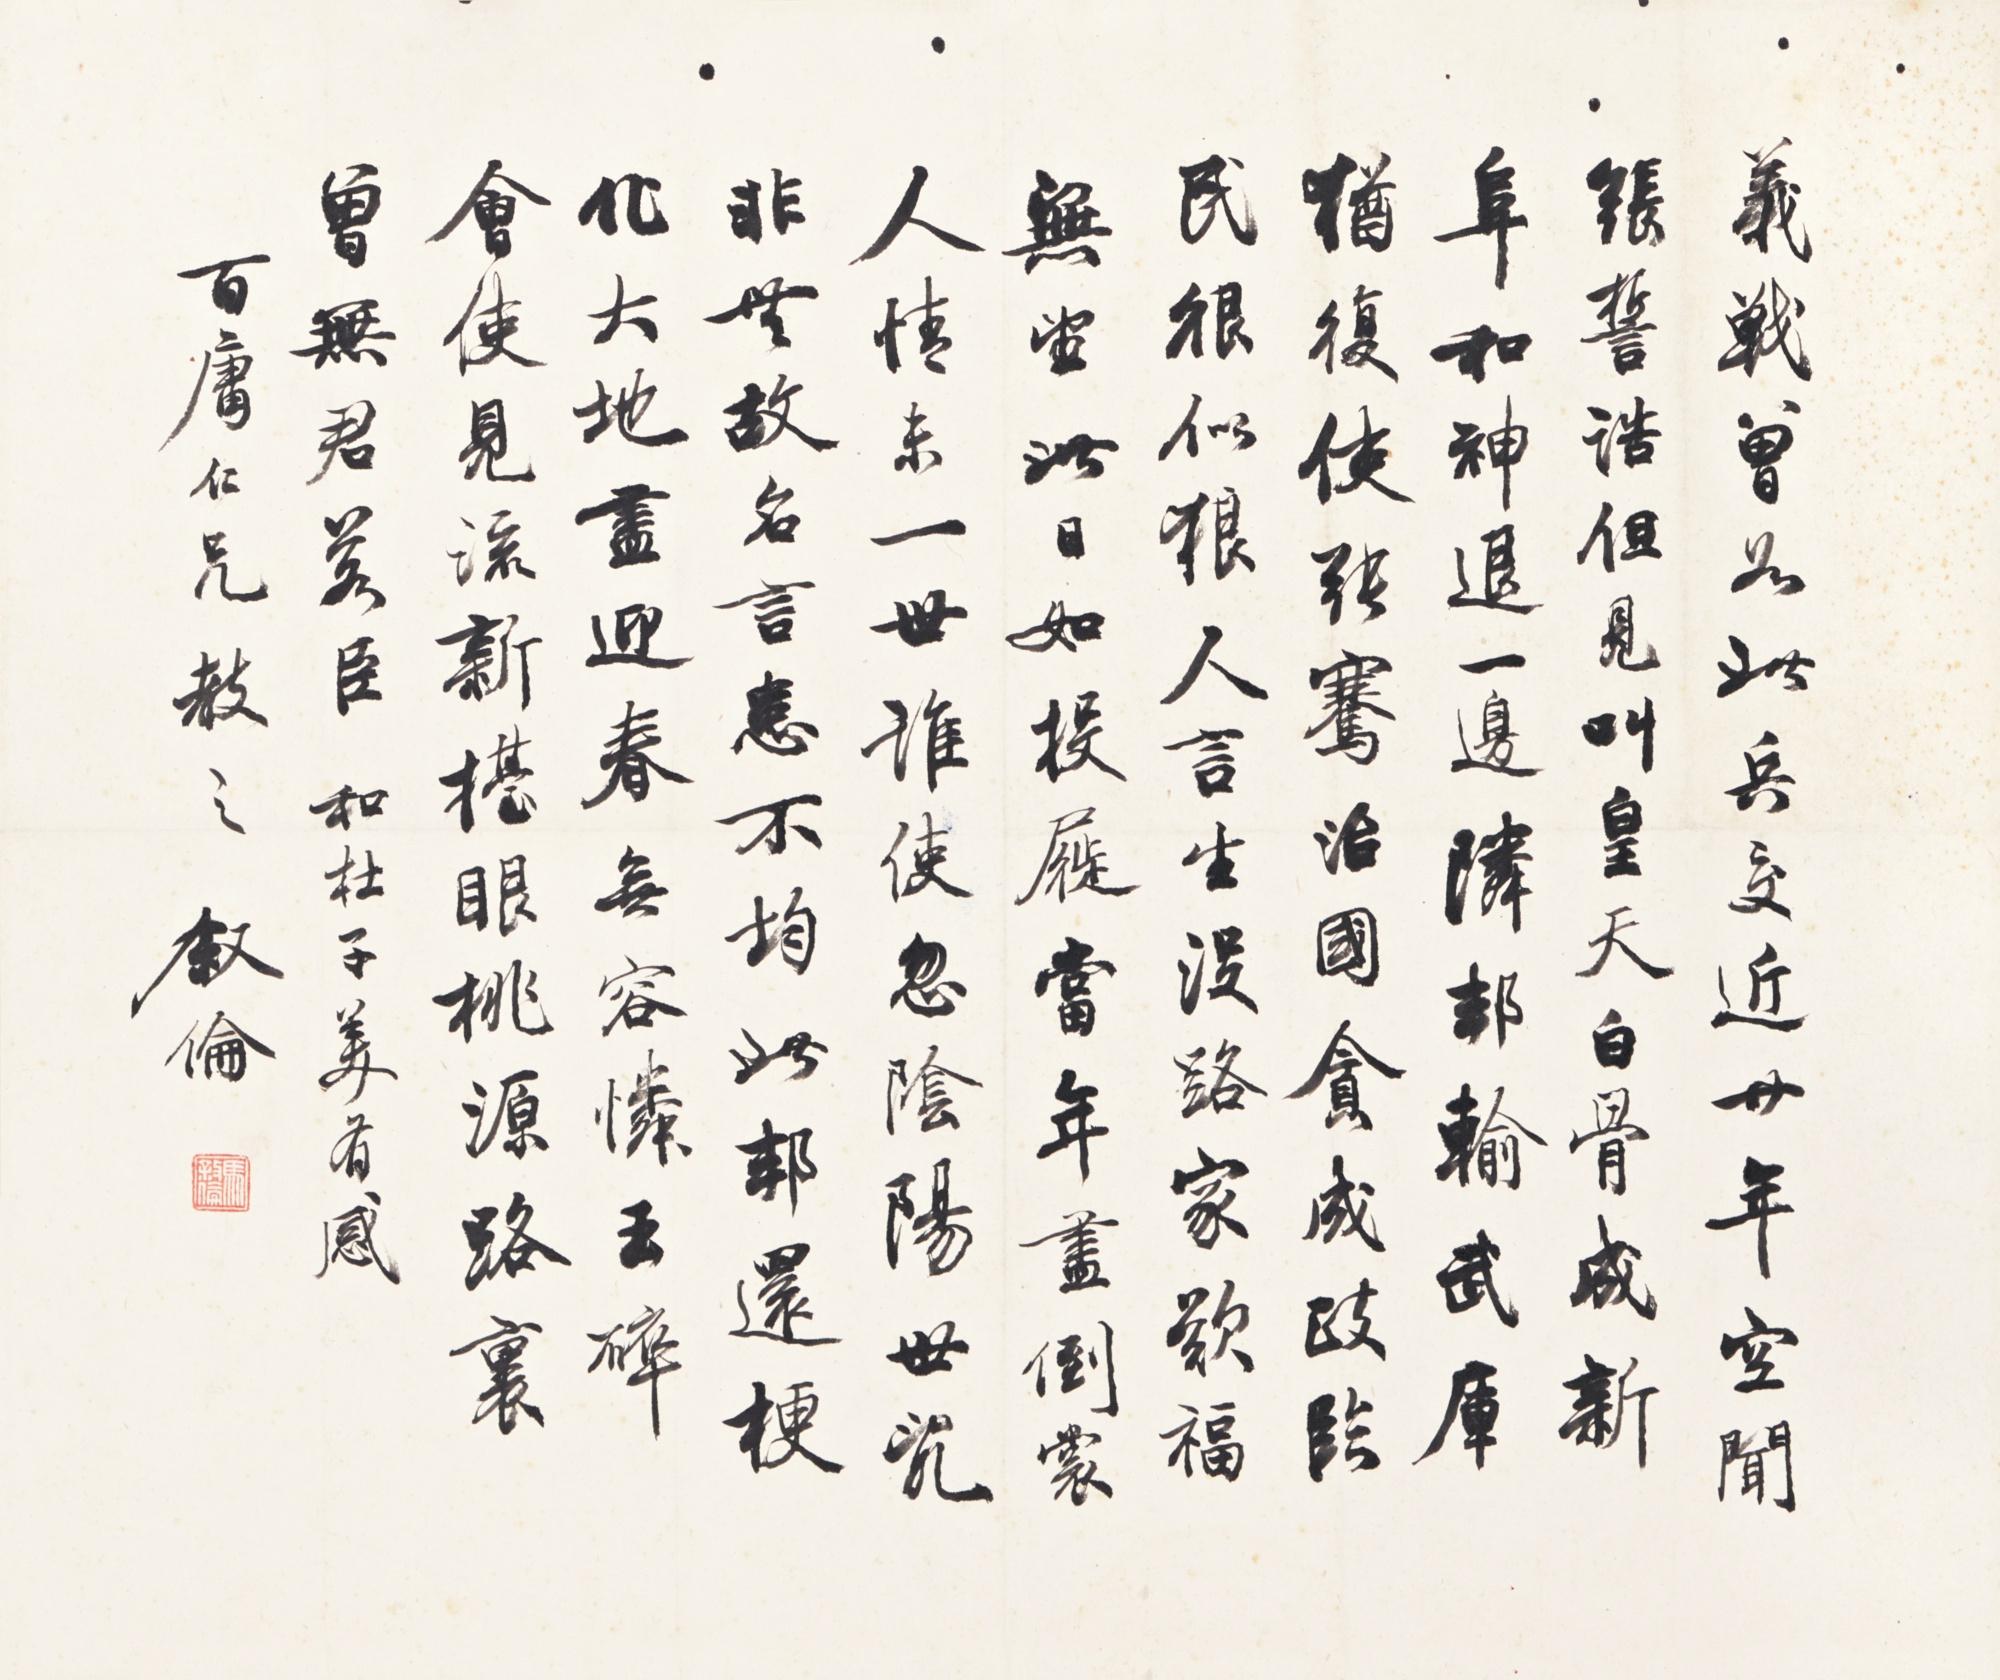 義戰曾若此兵交近廿年空聞
張誓誥但見叫皇天白骨成新
阜和神退一邊隣邦輸武庫
猶復使張騫治國貪成政臨
民很似狼人言生沒路家歎福
無望此日如投屣當年盡倒裳
人情未一世誰使忽陰陽世亂
非無故名言患不均此邦還梗
化大地盡迎春無容憐玉碎
會使見流新擡眼桃源路裏
曾無君若臣 和杜子美有感
百庸仁兄教之 叙倫
馬敘倫